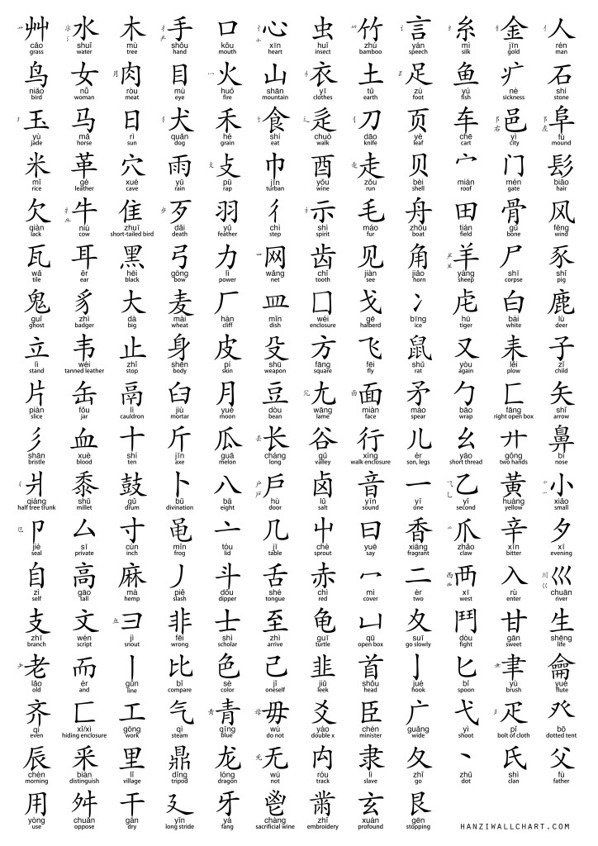 艸 水 木 手 口 心 虫 竹 言 糸 金 人
cǎo shuǐ mù shǒu kǒu xīn huǐ zhú yán mì jīn rén
grass water tree hand mouth heart insect bamboo speech silk gold man
鸟 女 肉 目 火 山 衣 土 足 鱼 疒 石
niǎo nǚ ròu mù huǒ shān yī tǔ zú yú nè shí
bird woman meat eye fire mountain clothes earth foot fish sickness stone
玉 马 日 犬 禾 食 辵 刀 页 车 邑 阜
yù mǎ rì quǎn hé shí chuò dāo yè chē yì fù
jade horse sun dog grain eat walk knife leaf cart city mound
米 革 穴 雨 攴 巾 酉 走 贝 宀 门 髟
mǐ gé xué yǔ pū jīn yǒu zǒu bèi mián mén biāo
rice leather cave rain rap turban wine run shell roof gate hair
欠 牛 隹 歹 羽 彳 示 毛 舟 田 骨 风
qiàn niú zhuī dǎi yǔ chì shì máo zhōu tián gǔ fēng
lack cow short-tailed bird death feather step spirit fur boat field bone wind
瓦 耳 黑 弓 力 网 齿 见 角 羊 尸 豕
wǎ ěr hēi gōng lì wǎng chǐ jiàn jiǎo yáng shī shǐ
tile ear black bow power net tooth see horn sheep corpse pig
鬼 豸 大 麦 厂 皿 囗 戈 冫 虍 白 鹿
guǐ zhì dà mài hàn mǐn wéi gē bīng hū bái lù
ghost badger big wheat cliff dish enclosure halberd ice tiger white deer
立 韦 止 身 皮 殳 方 飞 鼠 又 耒 子
lì wéi zhǐ shēn pí shū fāng fēi shǔ yòu lěi zǐ
stand tanned leather stop body skin weapon square fly rat again plow child
片 缶 鬲 臼 月 豆 尢 面 矛 勹 匚 矢
piàn fǒu lì jiù yuè dòu wāng miàn máo bāo fāng shǐ
slice jar cauldron mortar moon bean lame face spear wrap right open box arrow
彡 血 十 斤 瓜 长 谷 行 儿 幺 廾 鼻
shān xuè shí jīn guā cháng gǔ xíng ér yāo gǒng bí
bristle blood ten axe melon long valley walk enclosure son, legs short thread two hands nose
爿 黍 鼓 卜 八 戶 卤 音 一 乙 黃 小
qiáng shǔ gǔ bǔ bā hù lǔ yīn yī yǐ huáng xiǎo
half tree trunk millet drum divination eight door salt sound one second yellow small
卩 厶 寸 黾 亠 几 屮 曰 香 爪 辛 夕
jié sī cùn mǐn tóu jī chè yuē xiāng zhǎo xīn xī
seal private inch frog lid table sprout say fragrant claw bitter evening
自 高 麻 丿 斗 舌 赤 冖 二 西 入 巛
zì gāo má piě dǒu shé chì mì èr xī rù chuān
self tall hemp slash dipper tongue red cover two west enter river
支 文 彐 非 士 至 龟 凵 夊 鬥 甘 生
zhī wén jì fēi shì zhì guī qū suī dòu gān shēng
branch script snout wrong scholar arrive turtle open box go slowly fight sweet life
老 而 丨 比 色 己 韭 首 亅 匕 聿 龠
lǎo ér gǔn bǐ sè jǐ jiǔ shǒu jué bǐ yù yuè
old and line compare color oneself leek head hook spoon brush flute
齐 匸 工 气 青 毋 爻 臣 广 弋 疋 癶
qí xǐ/xì gōng qì qīng wú yáo chén guǎng yì pǐ bō
even hiding enclosure work steam blue do not double x minister wide shoot bolt of cloth dotted tent
辰 釆 里 鼎 龙 无 禸 隶 夂 丶 氏 父
chén biàn lǐ dǐng lóng wú róu lì zhǐ zhǔ shì fù
morning distinguish village tripod dragon not track slave go dot clan father
用 舛 干 廴 牙 鬯 黹 玄 艮
yòng chuǎn gān yǐn yá chàng zhǐ xuán gèn
use oppose dry long stride fang sacrificial wine embroidery profound stopping
HANZIWALLCHART.COM